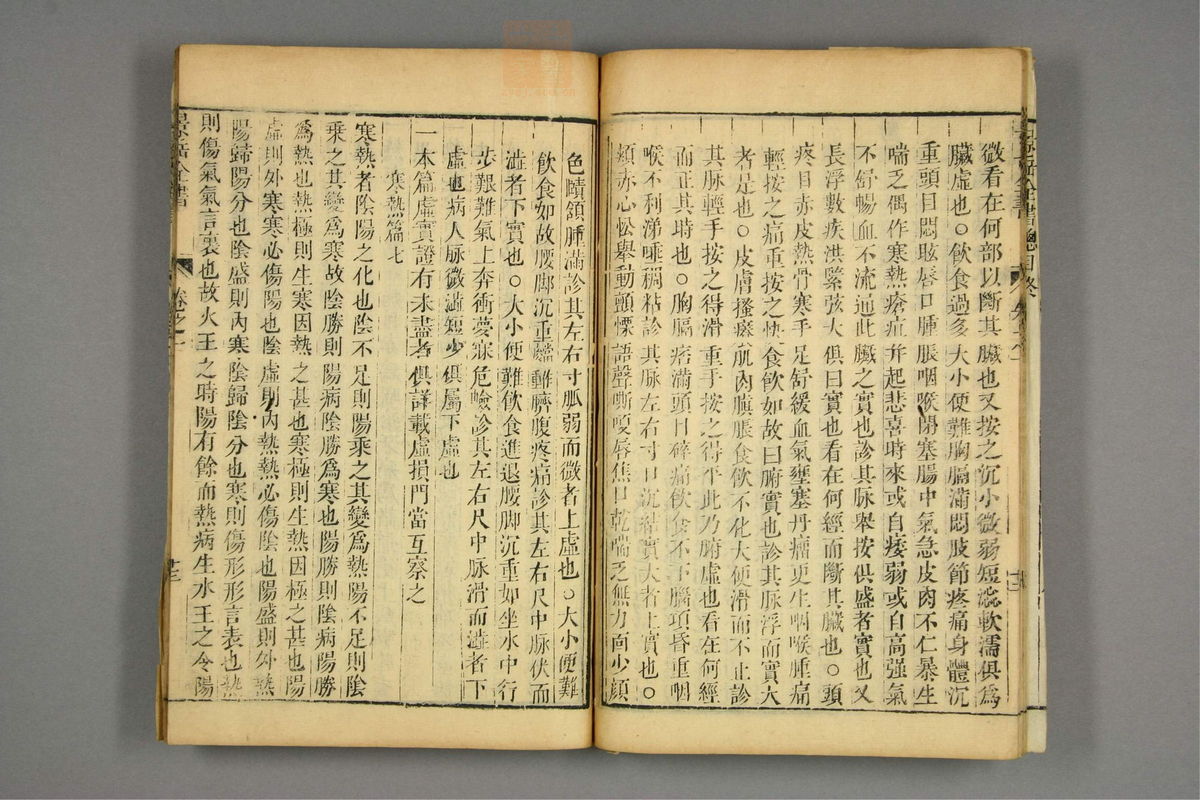 微看在何部以斷其臟也又按之沉小微弱短澁軟濡俱為
臟虛也○飲食過多大小便難胸膈滿悶肢節疼痛身體沉
重頭目悶眩唇口腫脹咽喉閉塞腸中氣急皮肉不仁暴生
喘乏偶作寒熱瘡疽并起悲喜時來或自痿弱或自高强氣
不舒暢血不流通此臟之實也診其脉舉按俱盛者實也又
長浮數疾洪緊弦大俱曰實也看在何經而斷其臟也○頭
疼目赤皮熱骨寒手足舒緩血氣壅塞丹瘤更生咽喉腫痛
輕按之痛重按之快食飲如故曰腑實也診其脉浮而實大
者是也○皮膚搔癢肌肉䐜脹食飲不化大便滑而不止診
其脉輕手按之得滑重手按之得平此乃腑虛也看在何經
而正其時也○胸膈痞滿頭目碎痛飲食不下腦項昏重咽
喉不利涕唾稠粘診其脉左右寸口沉結實大者上實也○
頰赤心忪舉動顫慄語聲嘶嗄唇焦口乾喘乏無力面少顏
色頤頷腫滿診其左右寸脉弱而微者上虛也○大小便難
飲食如故腰脚沉重臍腹疼痛診其左右尺中脉伏而
澁者下實也○大小便難飲食進退腰脚沉重如坐水中行
步艱難氣上奔衝夢寐危嶮診其左右尺中脉滑而澁者下
虛也病人脉微澁短少俱屬下虛也
一本篇虛實證有未盡者俱詳載虛損門當互察之
寒熱篇七
寒熱者陰陽之化也陰不足則陽乘之其變為熱陽不足則陰
乘之其變為寒故陰勝則陽病陰勝為寒也陽勝則陰病陽勝
為熱也熱極則生寒因熱之甚也寒極則生熱因極之甚也陽
虛則外寒寒必傷陽也陰虛則內熱熱必傷陰也陽盛則外熱
陽歸陽分也陰盛則內寒陰歸陰分也寒則傷形形言表也熱
則傷氣氣言裏也故火王之時陽有餘而熱病生水王之令陽
景岳全書
卷之一
十三